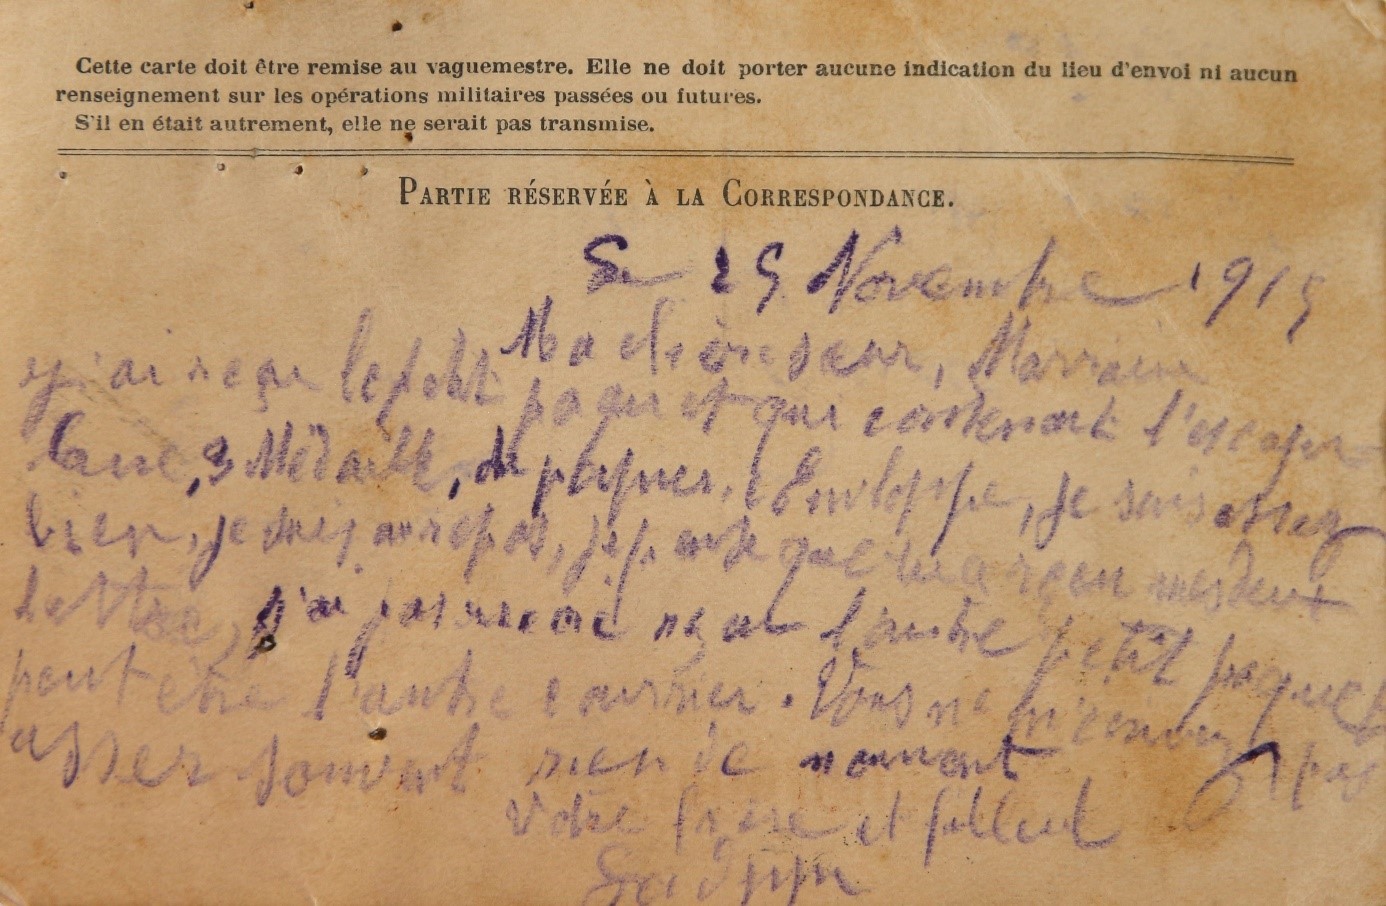 Cette carte doit être remise au vaguemestre. Elle ne doit porter aucune indication du lieu d'envoi ni aucun
renseignement sur les opérations militaires passées ou futures.
S'il en était autrement, elle ne serait pas transmise.
PARTIE RÉSERVÉE À LA CORRESPONDANCE.
Le 25 Novembre 1915
Ma chère sœur, Marraine
j'ai reçu le petit paquet qui contenait l'escapu-
laire, 3 Médaille, de plumes, Enveloppe, je suis assez
bien, je suis au repos, je pense que tu a reçu mes deux
lettre, j'ai pas encore reçu l'autre petit paquet
peut être l'autre courrier. Vous ne m'envoyez pas
assez souvent rien de nouveaut
Votre frère et filleul